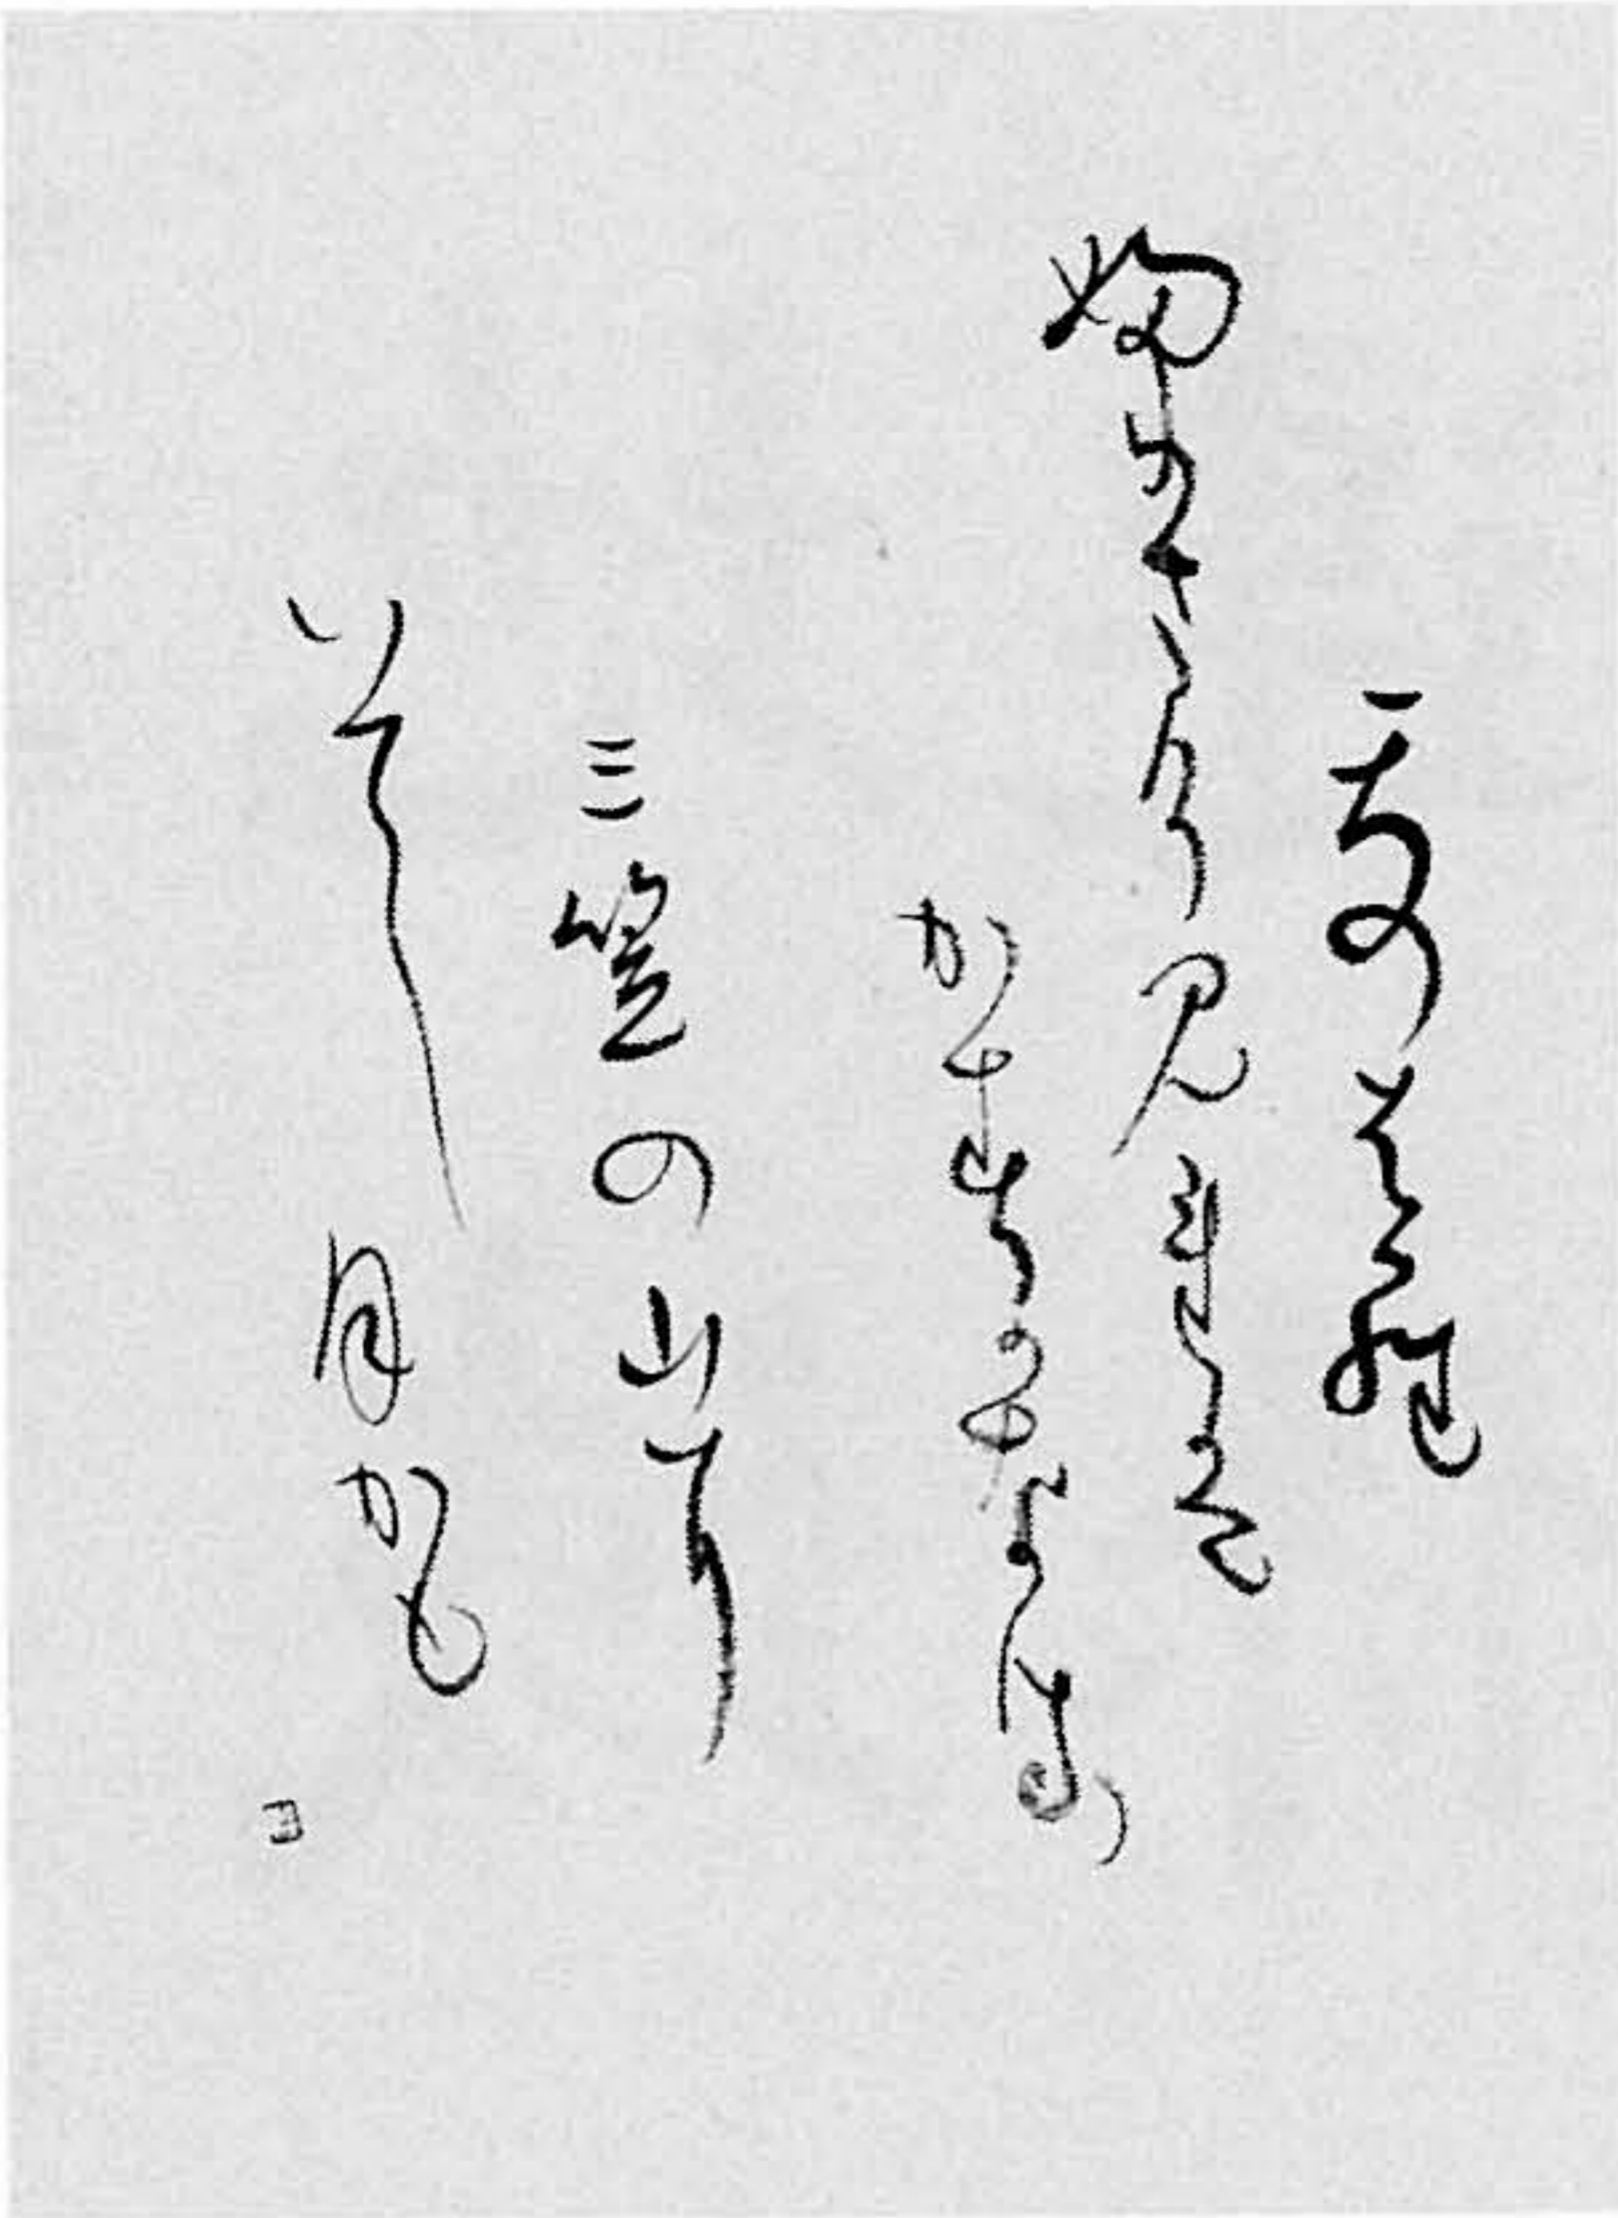 天のはら
ふりさけ見れは
かすかなる
三笠の山に
いてし月かも